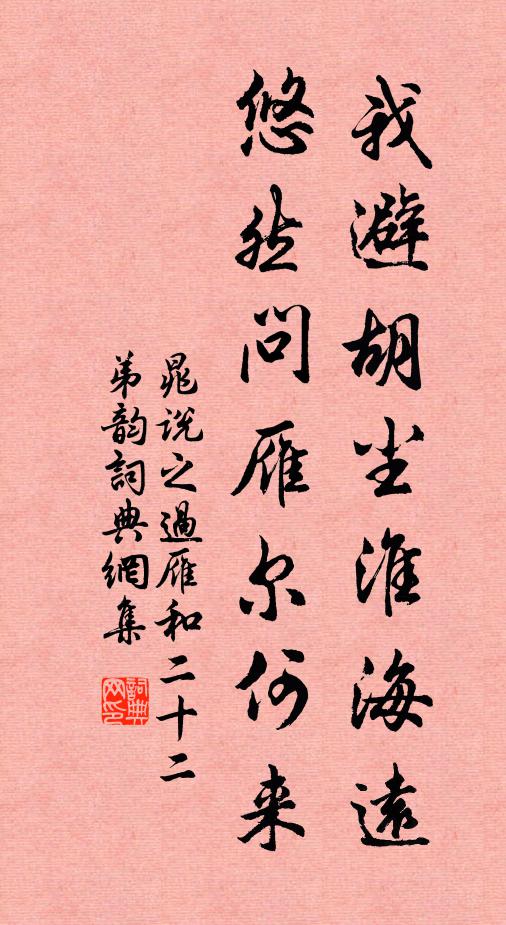 我避胡尘淮海遠
悠然问雁尔何来
晁说之過雁和二十二
弟韵詞典網集
詞典网印